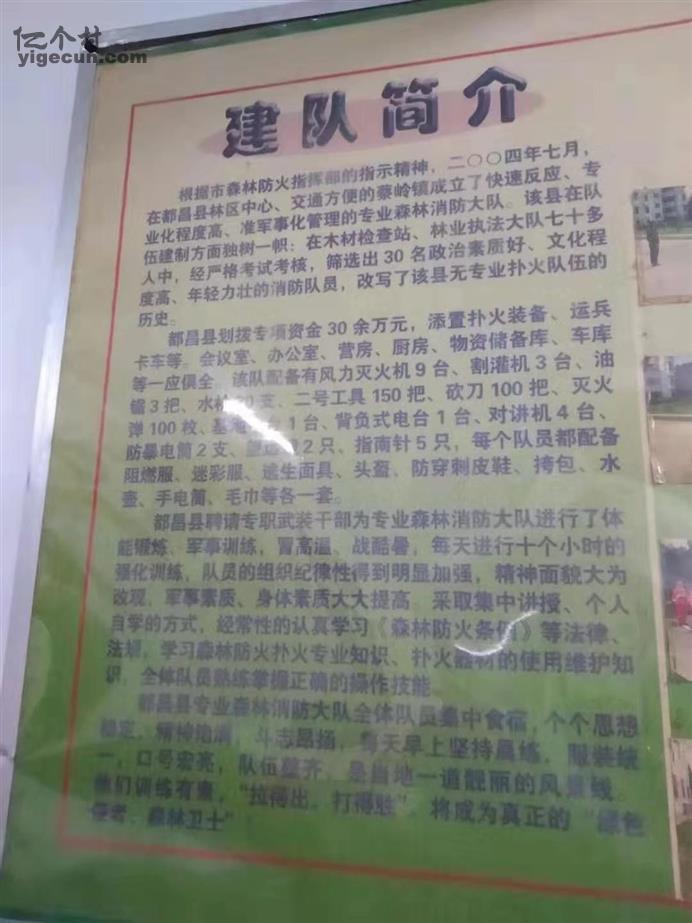 亿个村
yigecun.com
建队简介
根据市森林防火指挥部的指示精神，二〇〇四年七月，
在都昌县林区中心、交通方便的蔡岭镇成立了快速反应、专
业化程度高、准军事化管理的专业森林消防大队。该县在队
伍建制方面独树一帜：在木材检查站、林业执法大队七十多
人中，经严格考试考核，筛选出30名政治素质好、文化程
度高、年轻力壮的消防队员，改写了该县无专业扑火队伍的
历史。
都昌县划拨专项资金30余万元，添置扑火装备、运兵
卡车等。会议室、办公室、营房、厨房、物资储备库、车库
等一应俱全。该队配备有风力灭火机9台、割灌机3台、油
锯3把、水枪20支、二号工具150把、砍刀100把、灭火
弹100枚、基地电台1台、背负式电台1台、对讲机4台、
防暴电筒2支、望远镜2只、指南针5只，每个队员都配备
阻燃服、迷彩服、逃生面具、头盔、防穿刺皮鞋、挎包、水
壶、手电筒、毛巾等各一套。
都昌县聘请专职武装干部为专业森林消防大队进行了体
能锻炼、军事训练，冒高温、战酷暑，每天进行十个小时的
强化训练，队员的组织纪律性得到明显加强，精神面貌大为
改观，军事素质、身体素质大大提高。采取集中讲授、个人
自学的方式，经常性的认真学习《森林防火条例》等法律、
法规，学习森林防火扑火专业知识、扑火器材的使用维护知
识，全体队员熟练掌握正确的操作技能。
都昌县专业森林消防大队全体队员集中食宿，个个思想
稳定，精神饱满，斗志昂扬，每天早上坚持晨练，服装统
一，口号宏亮，队伍整齐，是当地一道靓丽的风景线。
他们训练有素，“拉得出、打得胜”，将成为真正的“绿色
使者、森林卫士”